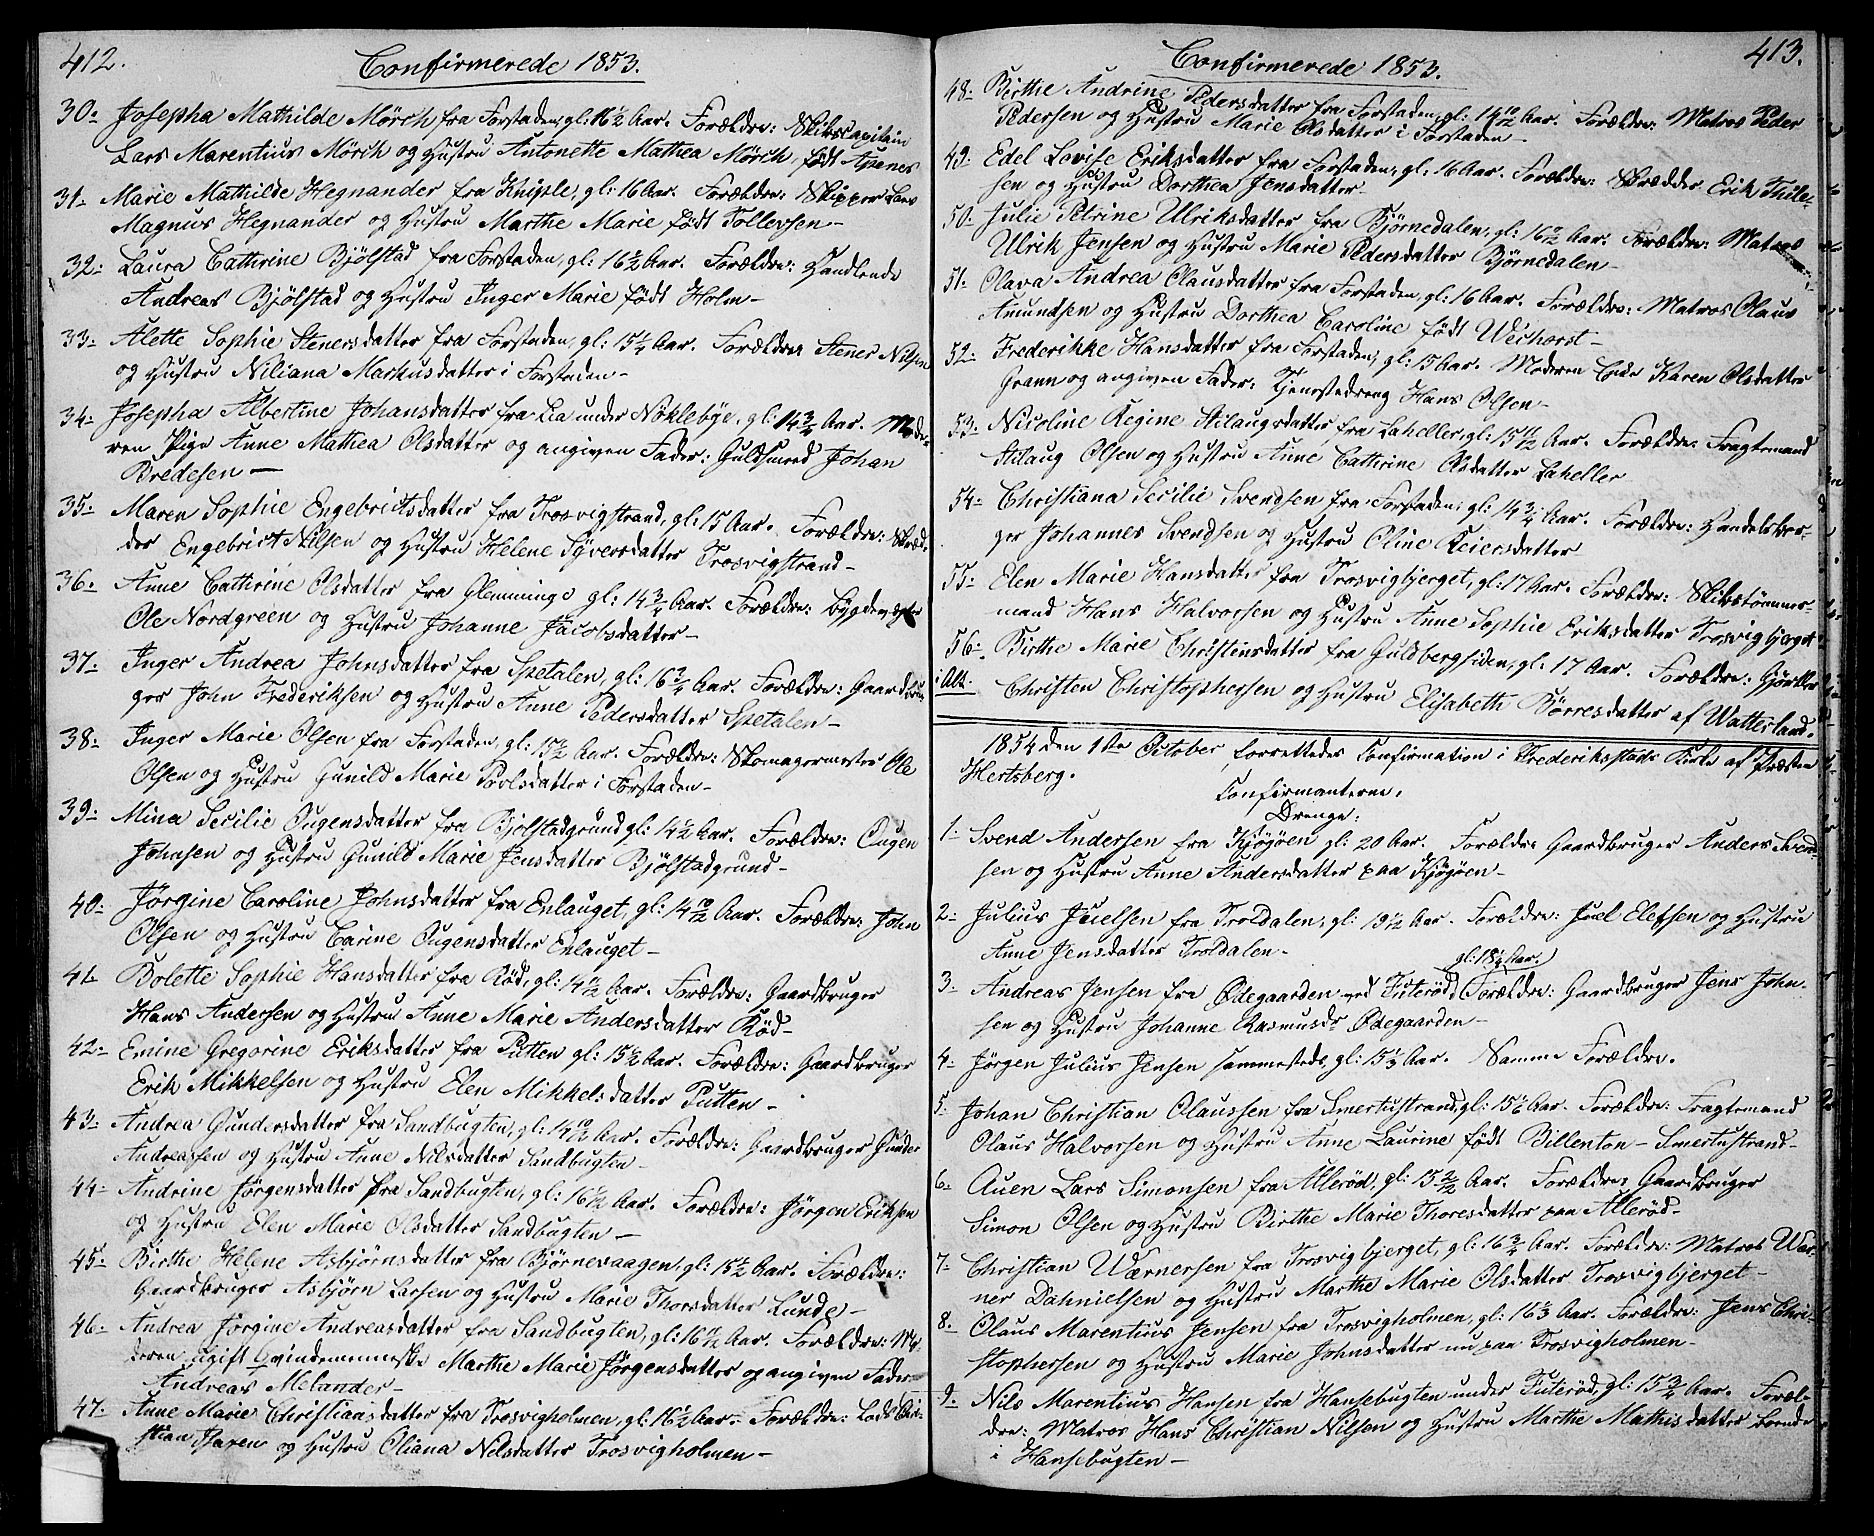 412.
Confirmerede 1853.
30. Josepha Mathilde Mörch fra Forstaden, gl: 16 1/2 Aar. Forældre: Skibscapitain
Lars Marentius Mörch og Hustru Antonette Mathea Mörch, født Apenes
31. Marie Mathilde Hegnander fra Knipsle, gl: 16 Aar. Forældre: Skipper Lars
Magnus Hegnander og Hustru Marthe Marie født Tollevsen-
32. Laura Cathrine Bjölstad fra Forstaden, gl: 16 Aar. Forældre: Handlende
Andreas Bjölstad og Hustru Inger Marie født Holm-
33. Alette Sophie Stenersdatter fra Forstaden, gl: 15 1/4 Aar. Forældre Stener Nilsen
og Hustru Niliana Markusdatter i Forstaden-
34. Josepha Albertine Johansdatter fra Lia under Nøklebye, gl: 14 3/4 Aar. Mode-
ren Pige Anne Mathea Olsdatter og angiven Fader: Guldsmed Johan
Bredesen-
35. Maren Sophie Engebrictsdatter fra Trosvigstrand, gl: 15 Aar. Forældre: Skræd-
der Engebrict Nilsen og Hustru Helene Syversdatter Trosvigstrand-
36. Anne Cathrine Olsdatter fra Glemminge gl: 14 3/4 Aar. Forældre: Bygdevægter
Ole Nordgreen og Hustru Johanne Jacobsdatter-
37. Inger Andrea Johnsdatter fra Spetalen, gl: 16 3/4 Aar. Forældre: Gaardbru-
ger John Frederiksen og Hustru Anne Pedersdatter Spetalen-
38. Inger Marie Olsen fra Forstaden, gl: 15 Aar. Forældre: Skomagermester Ole
Olsen og Hustru Gunild Marie Povlsdatter i Forstaden-
39. Mina Secilie Ougensdatter fra Bjölstadgrund gl: 14 1/2 Aar. Forældre: Ougen
Johnsen og Hustru Gunild Marie Jensdatter Bjölstadgrund-
40. Jörgine Caroline Johnsdatter fra Enlauget, gl: 14 10/12 Aar. Forældre: John
Olsen og Hustru Carine Ougensdatter Enlauget-
41. Bolette Sophie Hansdatter fra Röd, gl: 14 11/12 Aar. Forældre: Gaardbruger
Hans Andersen og Hustru Anne Marie Andersdatter Röd-
42. Emine Gregorine Eriksdatter fra Putten gl: 15 1/2 Aar. Forældre: Gaardbruger
Erik Mikkelsen og Hustru Elen Mikkelsdatter Putten-
43. Andrea Gundersdatter fra Sandbugten, gl: 14 10/12 Aar. Forældre: Gaardbruger Gunder
Andreassen og Hustru Anne Nilsdatter Sandbugten-
44. Andrine Jörgensdatter fra Sandbugten, gl: 16 Aar. Forældre: Jörgen Eriksen
og Hustru Elen Marie Olsdatter Sandbugten-
45. Birthe Helene Asbjörnsdatter fra Bjørnevaagen, gl: 15 1/2 Aar. Forældre:
Gaardbruger Asbjörn Larsen og Hustru Marie Thorsdatter Lunde-
46. Andrea Jörgine Andreasdatter fra Sandbugten, gl: 16 Aar. Forældre: Mo-
deren ugift Qvindemenneske Marthe Marie Jörgensdatter og angiven Fader
Andreas Melander-
47. Anne Marie Christiansdatter fra Trosvigholmen, gl: 16 1/2 Aar- Forældre: Lods Chri-
stian og Hustru Oliana Nilsdatter Trosvigholmen-
413.
Confirmerede 1853.
48. Birthe Andrine Pedersdatter fra Forstaden, gl: 14 10/12 Aar. Forældre: Matros Peder
Pedersen og Hustru Marie Olsdatter i Forstaden-
49. Edel Lovise Eriksdatter fra Forstaden, gl: 16 Aar. Forældre: Skrædder Erik Thile-
sen og Hustru Dorthea Jensdatter-
50. Julie Petrine Ulriksdatter fra Bjørnedalen, gl: 16 Aar. Forældre: Matros
Ulrik Jensen og Hustru Marie Pedersdatter Bjørnedalen-
51. Olava Andrea Olausdatter fra Forstaden, gl: 16 Aar. Forældre: Matros Olaus
Amundsen og Hustru Dorthea Caroline født Weihorst-
52. Frederikke Hansdatter fra Forstaden, gl: 15 Aar. Moderen Enke Karen Olsdatter
Grann og angiven Fader: Tjenestedreng Hans Olsen-
53. Nicoline Regine Aslaugsdatter fra Laheller, gl: 15 11/12 Aar. Forældre: Fragtemand
Aslaug Olsen og Hustru Anne Cathrine Olsdatter Laheller
54. Christiana Secilie Svendsen fra Forstaden, gl: 14 3/4 Aar. Forældre: Handelsbor-
ger Johannes Svendsen og Hustru Oline Reiersdatter
55. Elen Marie Hansdatter fra Trosvigbjerget, gl: 17 Aar. Forældre: Skibstømmer-
mand Hans Halvorsen og Hustru Anne Sophie Eriksdatter Trosvigbjerget
56. Birthe Marie Christinsdatter fra Guldbergsiden, gl: 17 Aar. Forældre: Gjørtler
i Alt. Christen Christophersen og Hustru Elisabeth Börresdatter af Watterland.
1854 den 1ste October, forrettedes Confirmation i Frederiksstads Kirke af Præsten
Hertzberg.
Confirmanterne:
Drenge:
1. Svend Andersen fra Kjøgöen gl: 20 Aar. Forældre Gaardbruger Anders Svend-
sen og Hustru Anne Andersdatter paa Kjøgöen-
2. Julius Juelsen fra Troldalen, gl: 19 1/2 Aar. Forældre: Juel Elefsen og Hustru
Anne Jensdatter Troldalen-
gl: 18 1/2 Aar.
3. Andreas Jensen fra Ødegaarden ved Futeröd, Forældre: Gaardbruger Jens John-
sen og Hustru Johanne Rasmusdr Ødegaarden-
4. Jörgen Julius Jensen sammesteds, gl: 15 1/3 Aar. Samme Forældre.
5. Johan Christian Olaussen fra Smertustrand, gl: 15 1/6 Aar. Forældre: Fragtemand
Olaus Halvorsen og Hustru Anne Laurine født Billenton- Smertustrand-
6. Auen Lars Simonsen fra Alleröd, gl: 15 Aar. Forældre Gaardbruger
Simon Olsen og Hustru Birthe Marie Thoresdatter paa Alleröd-
7. Christian Wærnersen fra Trosvigbjerget, gl: 16 3/4 Aar. Forældre: Matros Wær-
ner Dahnielsen og Hustru Marthe Marie Olsdatter Trosvigbjerget-
8. Olaus Marentius Jensen fra Trosvigholmen, gl: 16 Aar. Forældre: Jens Chri-
stophersen og Hustru Marie Johnsdatter nu paa Trosvigholmen-
9. Nils Marentius Hansen fra Hansebugten under Futeröd, gl: 15 3/4 Aar. Foræl-
dre: Matros Hans Christian Nilsen og Hustru Marthe Mathisdatter boende
i Hansebugten-